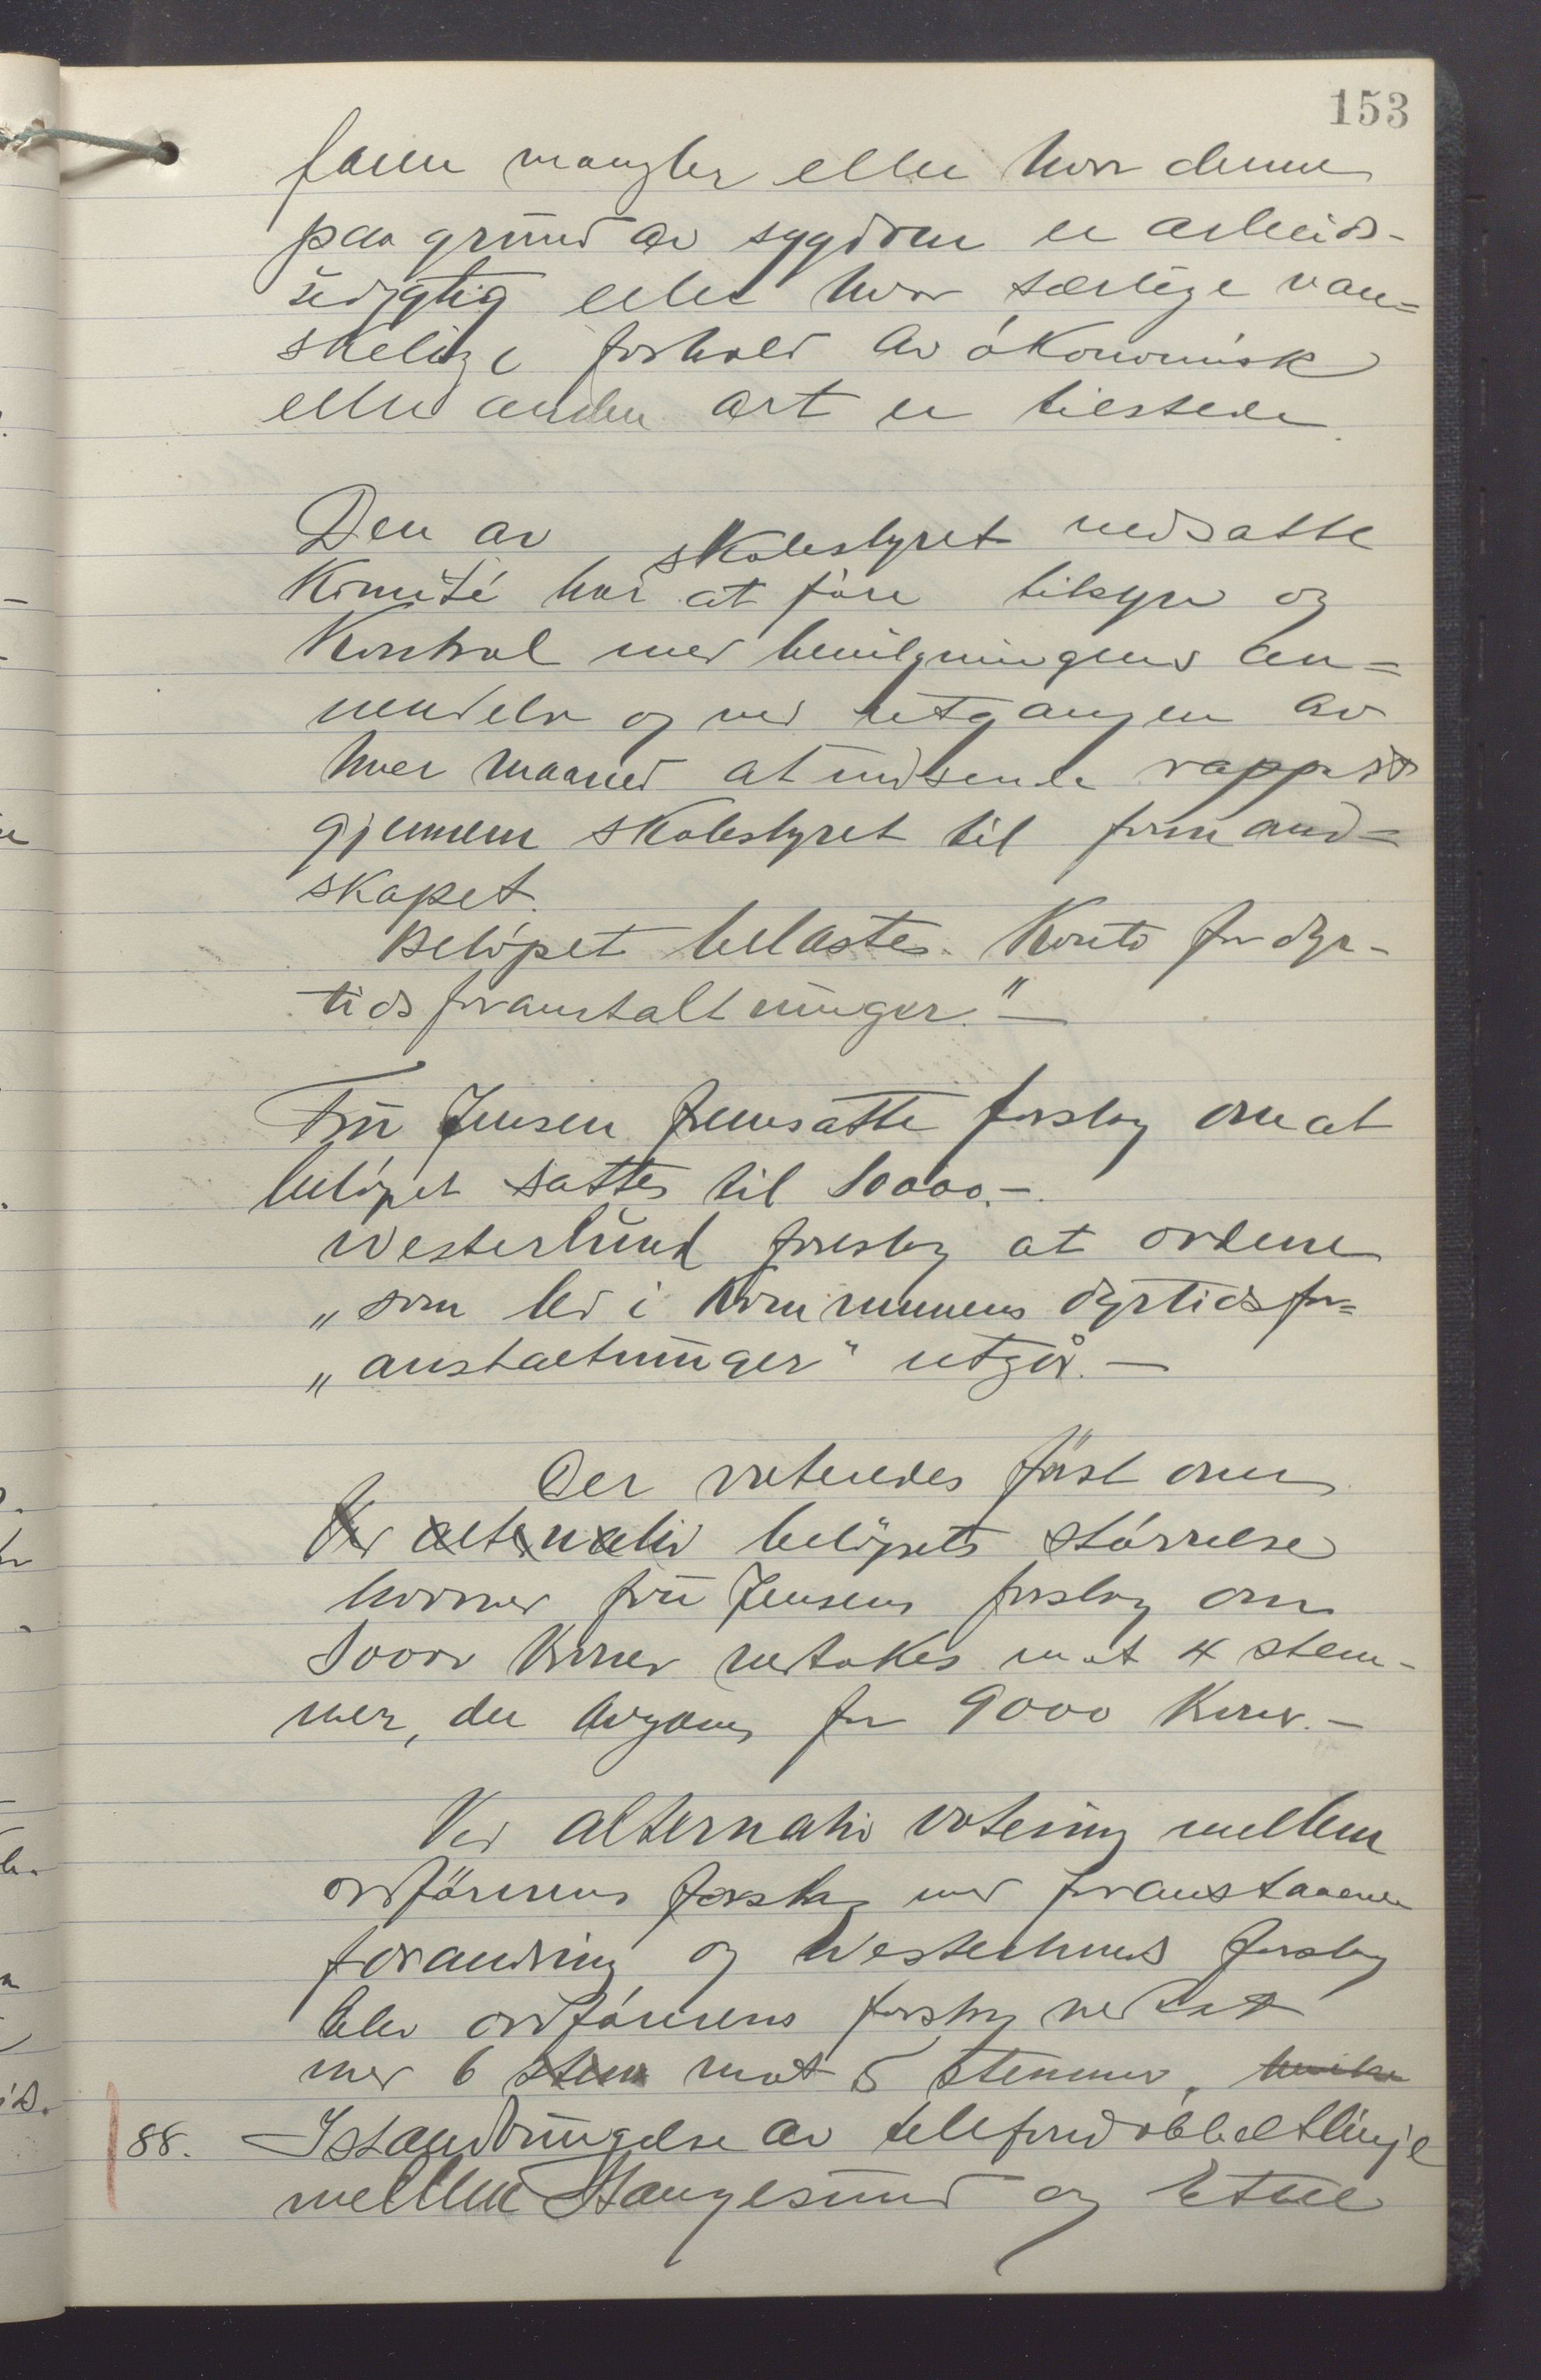 153
faren mangler eller hvor denne
paa grund av sygdom er arbeids-
udygtig eller hvor særlige van=
skelige forhold av økonomisk
eller anden art er tilstede.
Den av skolestyret nedsatte
Komité har at føre tilsyn og
Kontrol med bevilgningens an=
vendelse og ved utgangen av
hver maaned at indsende rapport
gjennem skolestyret til formand=
skapet.
Beløpet belastes Konto for dyr-
tidsforanstaltninger." —
Fru Jensen fremsatte forslag om at
beløpet sattes til 10000.-
Westerlund foreslog at ordene
„som led i Kommunens dyrtidsfor=
„anstaltninger" utgår. —
Der voteredes først om
Ved alternativ beløpets størrelse
hvorved fru Jensens forslag om
10000 kroner vedtokes mot 4 stem-
mer, der avgaves for 9000 Kroner. —
Ved alternativ votering mellem
ordførerens forslag med foranstaaende
forandring og Westerlunds forslag
blev ordførerens forslag vedtat
med 6 stem mot 5 stemmer.
88. Istandbringelse av telefondobbeltlinje
mellem Haugesund og Etne